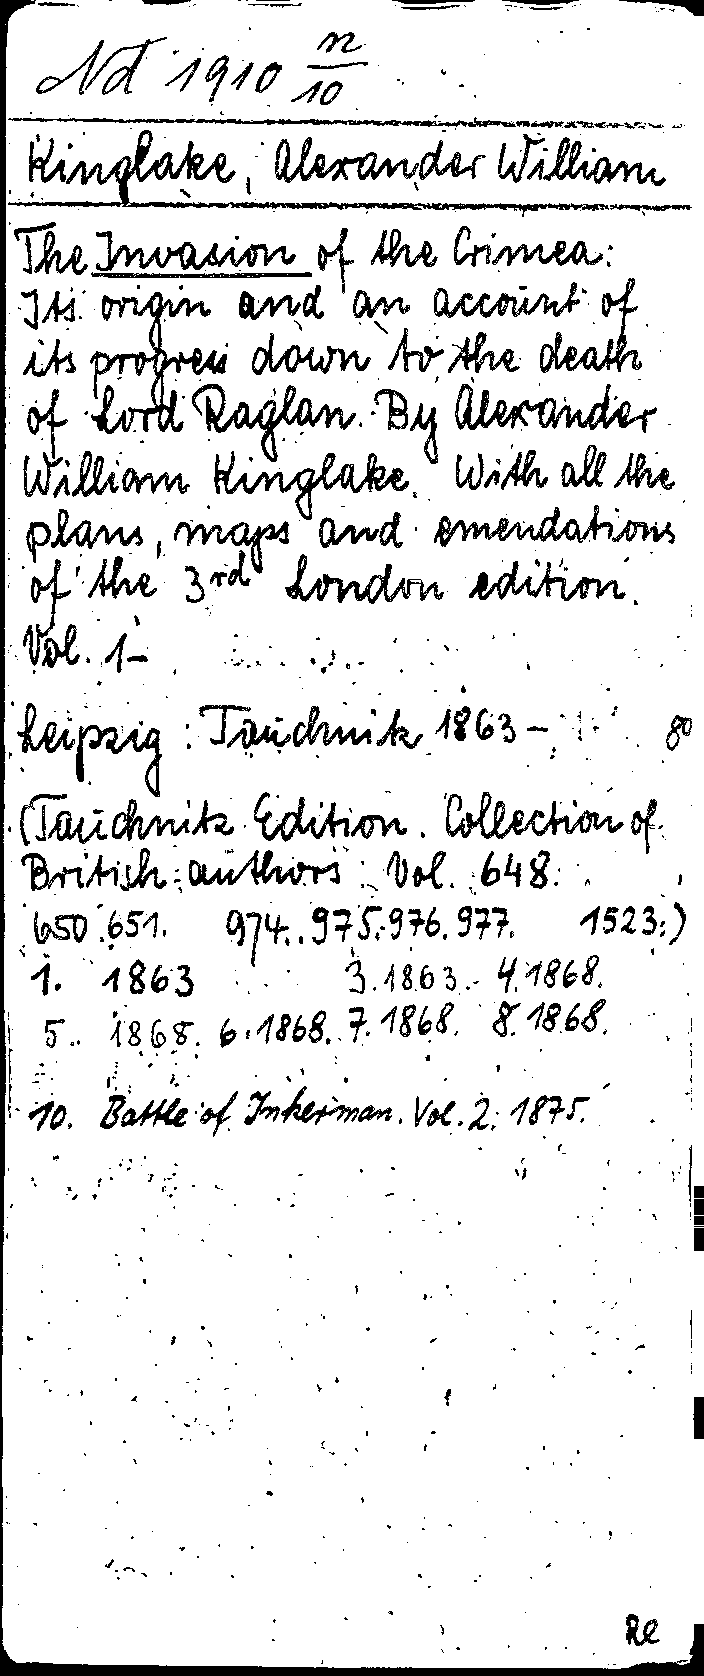 Nd 1910 n/10
Kinglake, Alexander William
The Invasion of the Crimea:
Its origin and an account of
its progress down to the death
of Lord Raglan. By Alexander
William Kinglake. With all the
plans, maps and emendations
of the 3rd London edition.
Vol. 1-
Leipzig: Tauchnitz 1863- 8°
(Tauchnitz Edition. Collection of
British authors Vol. 648.
650.651. 974.975.976.977. 1523.)
1. 1863 3.1863. 4.1868.
5. 1868. 6.1868. 7.1868. 8.1868.
10. Battle of Inkerman. Vol. 2. 1875.
Re